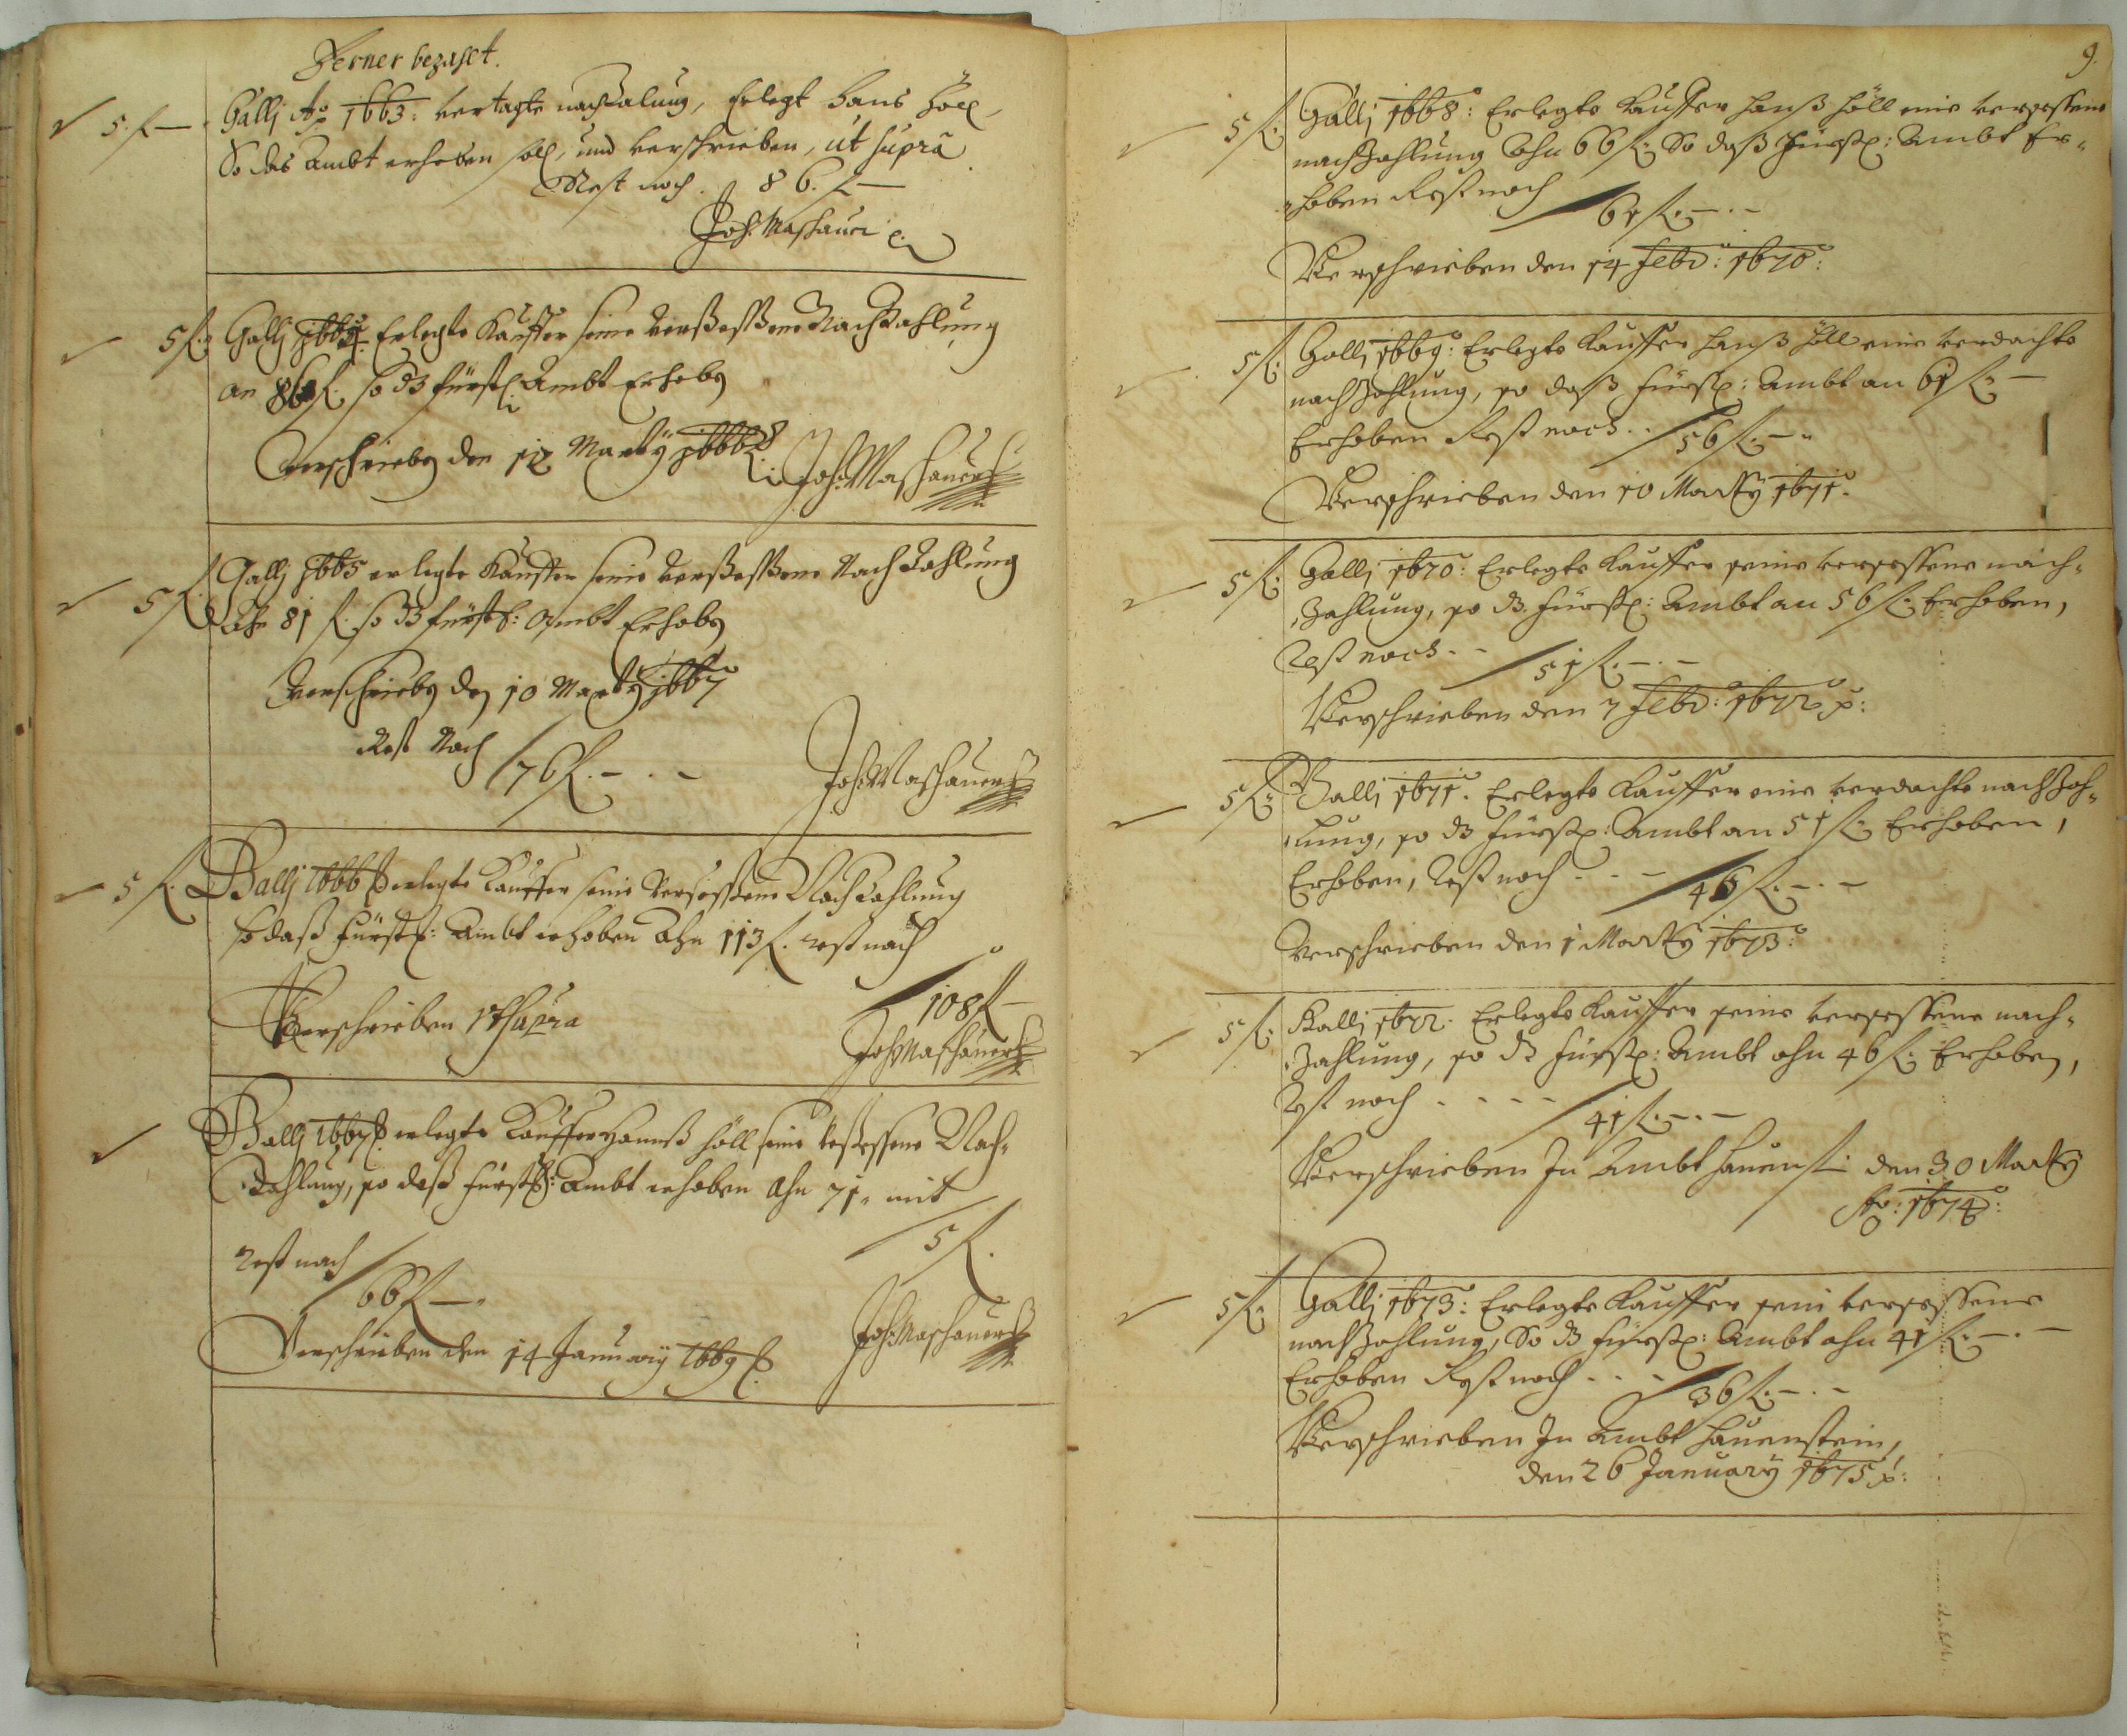 Ferner bezahlt.
5 f — Gallj Ao 1663: vertagte nachzalung, Erlegt Hans Höll,
So das Ambt erhoben soll, und verschrieben, ut supra
Rest noch. 86. f —
Joh: Maschauer
5 f. Gallj 1664. Erlegte Kauffer seine verseßene Nachzahlung
an 86 f. so dz fürstl Ambt Erhobn
Verschriebn den 12 Marty 1666
Joh: Maschauer
5 f. Gallj 1665 erlegte Kauffer seine verseßene Nachzahlung
Ahn 81 f. so dz fürstl: Ambt Erhobn
Verschriebn den 10 Marty 1667
Rest Noch 76 f. — . —
Joh: Maschauer
5 f. Gallj 1666 erlegte Kauffer seine Verseßene Nachzahlung
so daß fürstl: Ambt erhoben Ahn 113 f. rest noch
108 f —
Verschrieben Ut supra
Joh: Maschauer
Gallj 1667 erlegte Kauffer Hannß Höll seine verseßene Nach-
Zahlung, so daß fürstl: Ambt erhoben Ahn 71. mit
5 f.
rest noch
66 f —
Verschrieben den 14 January 1669
Joh: Maschauer
9.
5 f. Gallj 1668: Erlegte Kauffer Hanß Höll eine versessene
nachZahlung Ahn 66 f: So daß Fürstl: Ambt Er-
-hoben Rest noch
61 f. — . —
Verschrieben den 14 Febr: 1670:
5 f. Gallj 1669: Erlegte Kauffer Hanß Höll eine verdachte
nachZahlung, so daß Fürstl: Ambt an 61 f: —
Erhoben Rest noch . . 56 f. — .
Verschrieben den 10 Marty 1671.
5 f. Gallj 1670: Erlegte Kauffer seine versessene nach-
Zahlung, so dz Fürstl: Ambt an 56 f: Erhoben,
Rest noch . - 51 f. — . —
Verschrieben den 7 Febr: 1672 p:
5 f: Gallj 1671. Erlegte Kauffer eine verdachte nachZah-
-lung, so dz Fürstl: Ambt an 51 f: Erhoben,
Erhoben, Rest noch . - . - 46 f. — . —
Verschrieben den 1 Marty 1673:
5 f. Gallj 1672. Erlegte Kauffer seine versessene nach-
Zahlung, so dz Fürstl: Ambt ahn 46 f: Erhoben,
Rest noch - - - - 41 f. — . —
Verschrieben In Ambt Hauenst: den 30 Marty
Ao: 1674:
5 f. Gallj 1673: Erlegte Kauffer seine versessene
nachZahlung, So dz Fürstl: Ambt ahn 41 f. — . —
Erhoben Rest noch . . - 36 f. — . —
Verschrieben In Ambt Hauenstein,
den 26 January 1675 p: